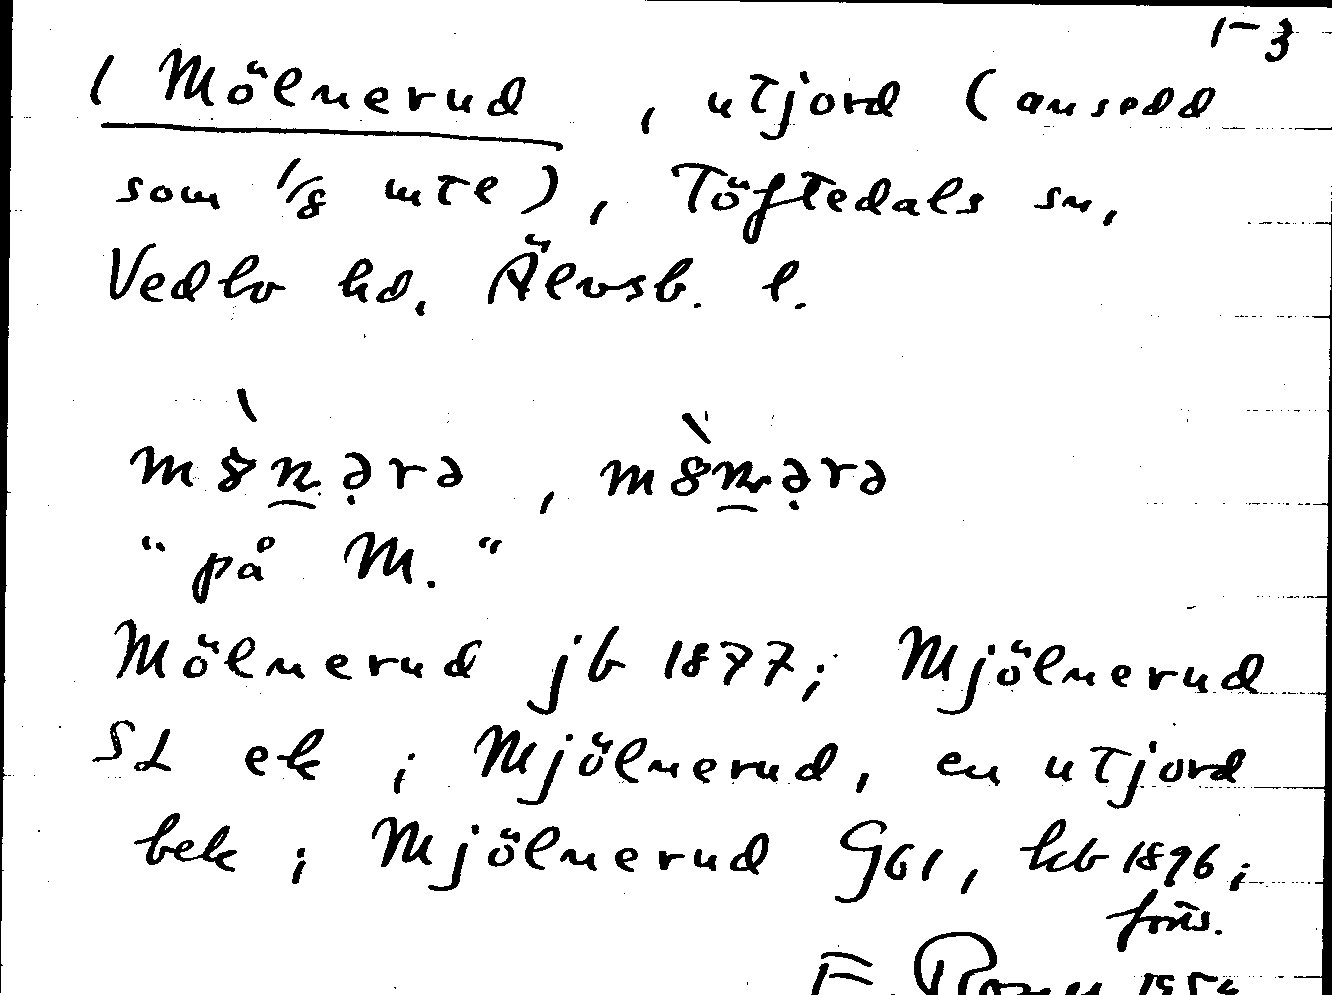 1-3
( Mölnerud , utjord (ansedd
som 1/8 mtl ) , Töftedals sn,
Vedbo hd. Älvsb. l.
"på M."
Mölnerud jb 1877; Mjölnerud
SL ek ; Mjölnerud, en utjord
bek ; Mjölnerud Gb1, kb 1896;
förs.